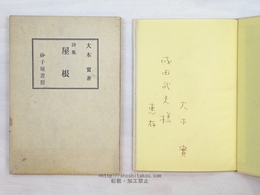 大木實著
詩集
屋根
砂子屋書房
成田
様
恵存
大木實
転載・加工禁止